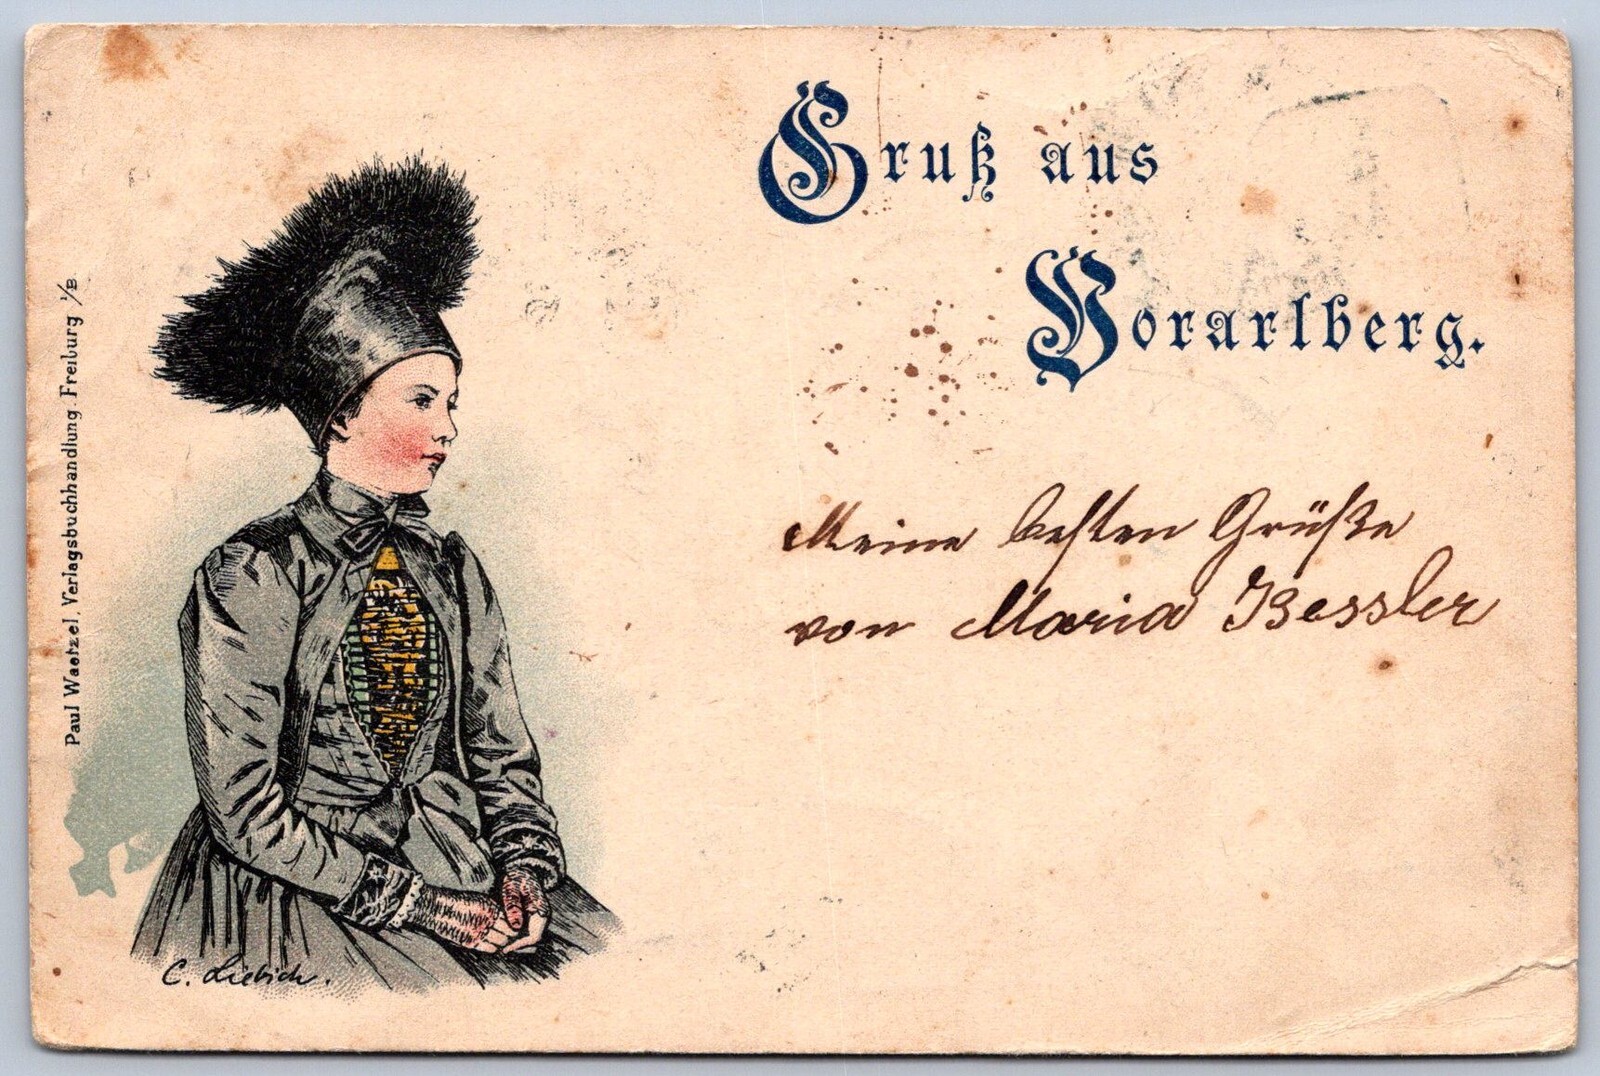 Gruß aus
Vorarlberg.
Meine besten Grüße
von Maria Bessler
Paul Waetzel, Verlagsbuchhandlung Freiburg i/B
C. Liebich.